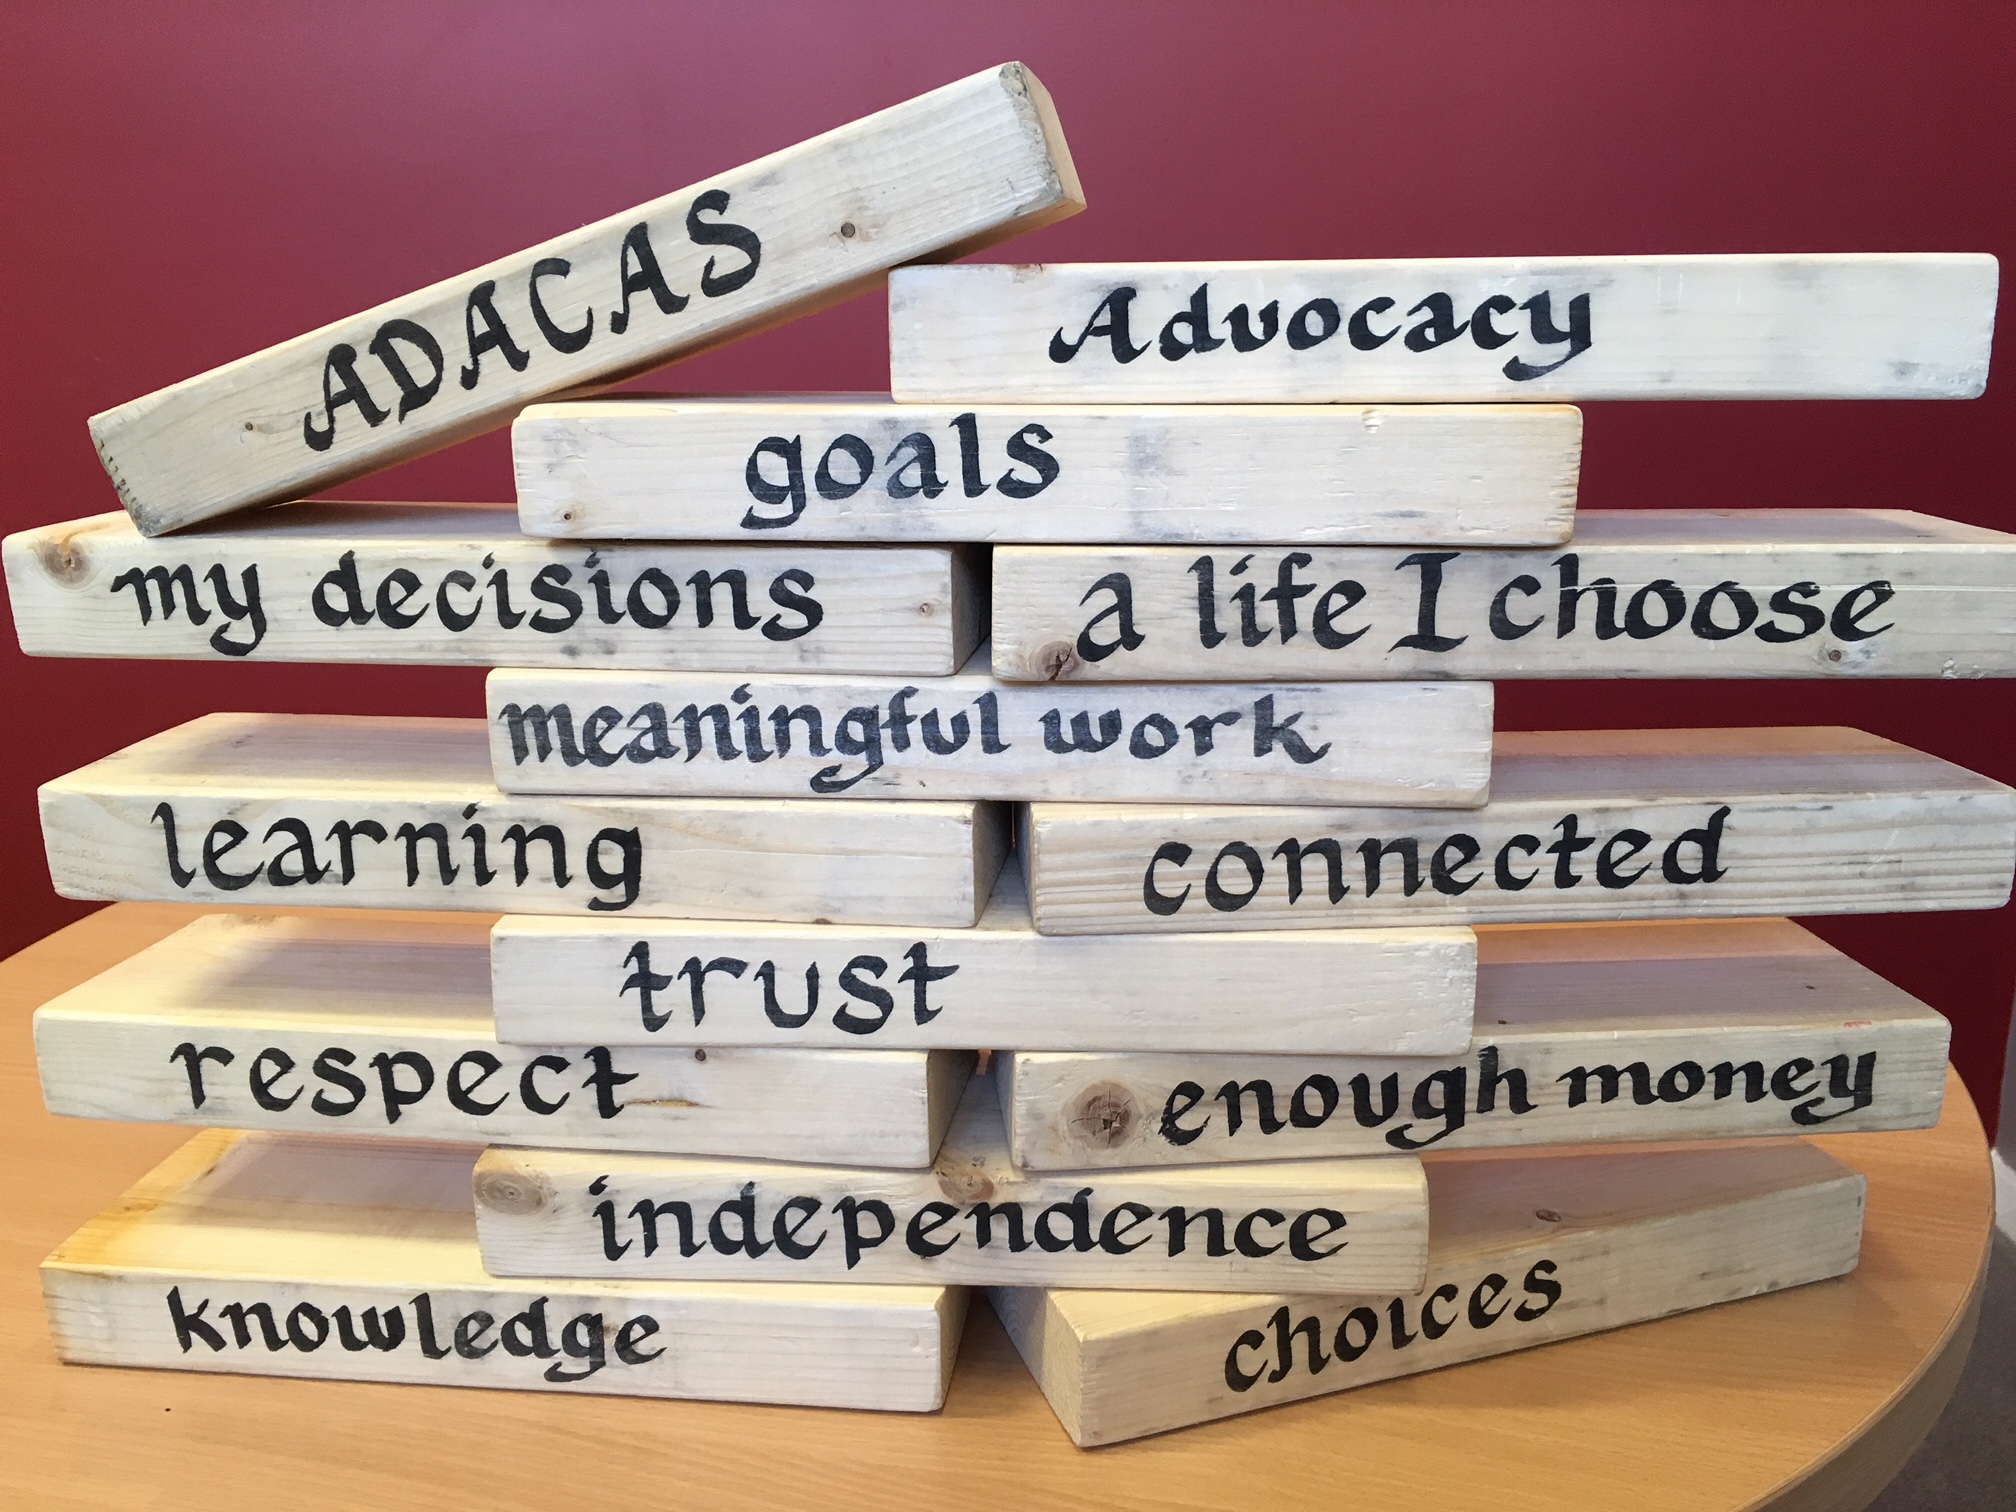 ADACAS
Advocacy
goals
my decisions
a life I choose
meaningful work
learning
connected
trust
respect
enough money
independence
knowledge
choices